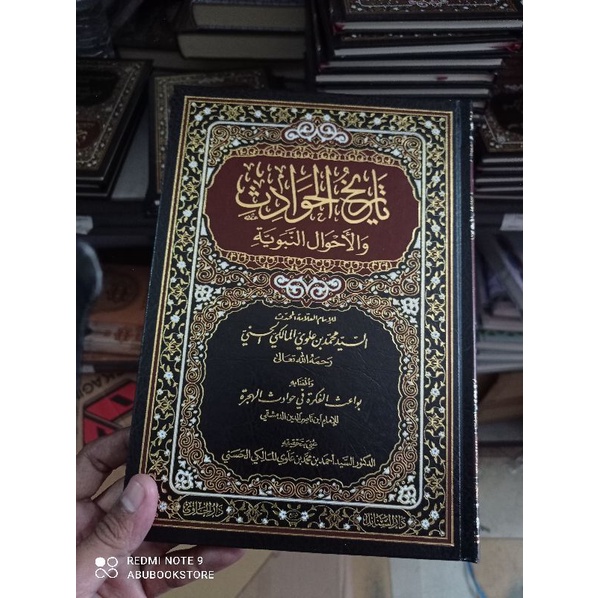 تاريخ الحوادث
والأحوال النبوية
للإمام العلامة المحدث
السيد محمد بن علوي المالكي الحسني
رحمه الله تعالى
بواعث الفكرة في حوادث الهجرة
للإمام ابن ناصر الدين الدمشقي
الدكتور السيد أحمد بن محمد بن علوي المالكي الحسني
REDMI NOTE 9
ABUBOOKSTORE